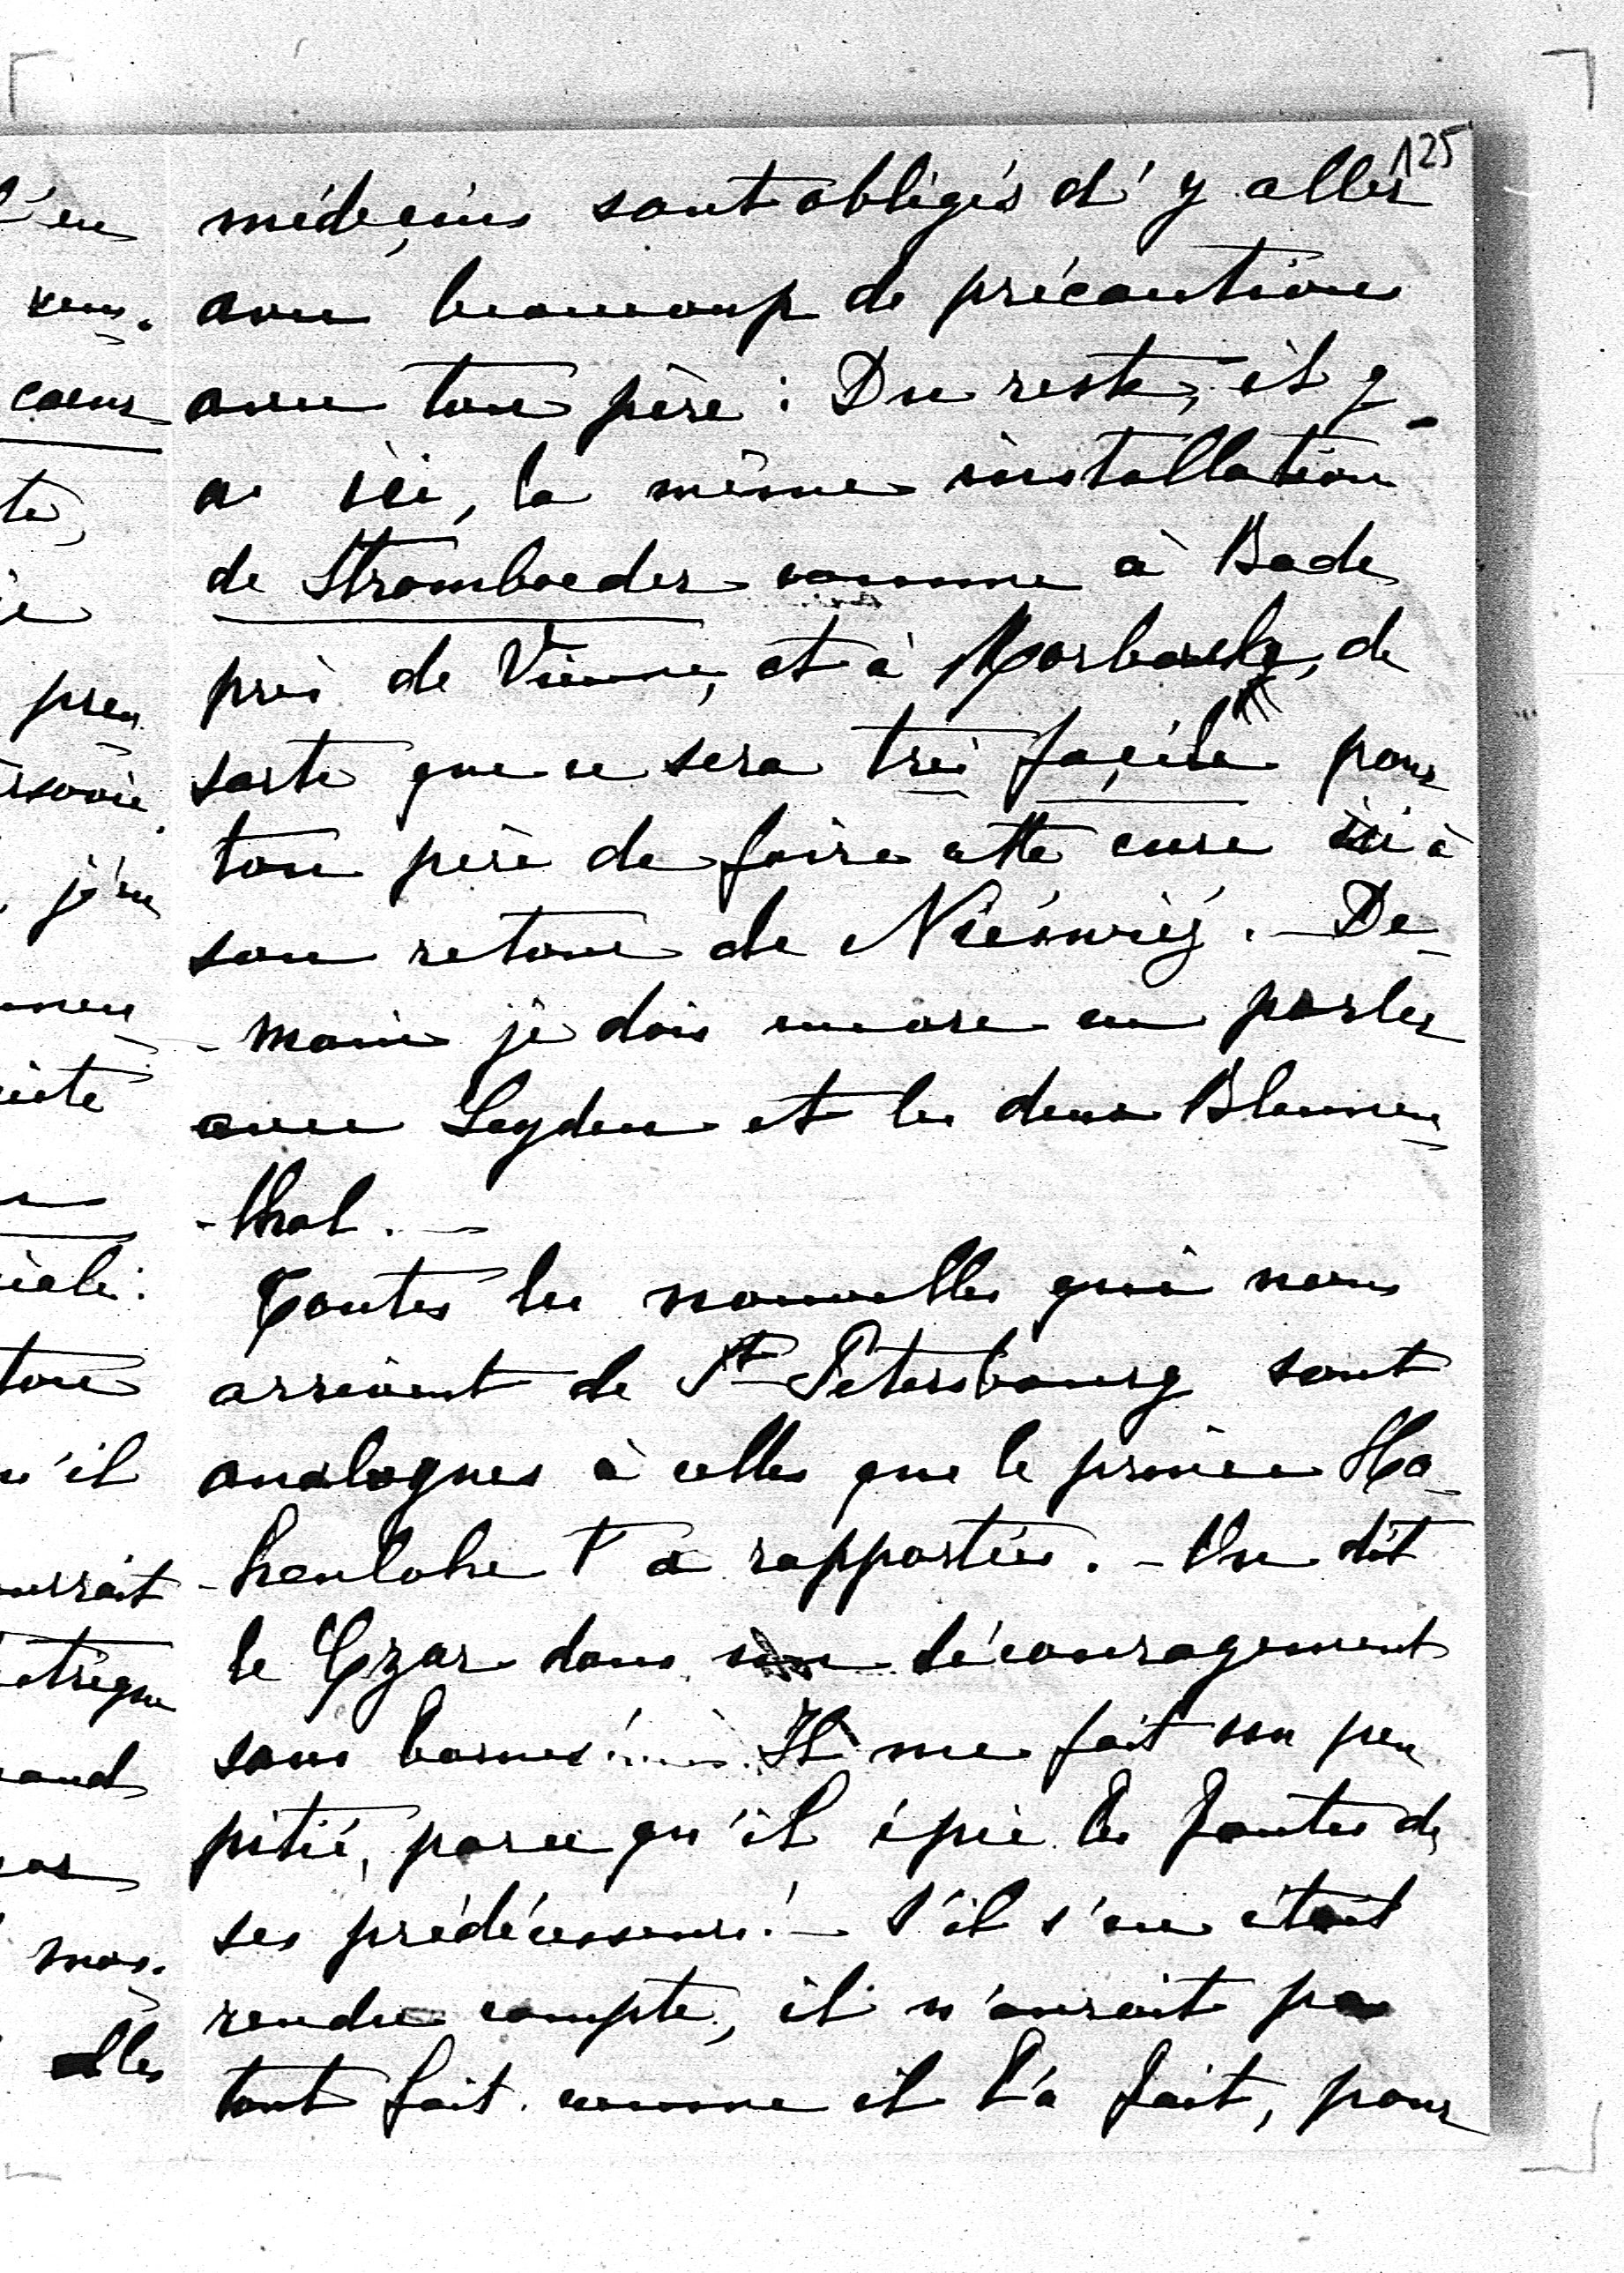 125
médecins sont obligés d'y aller
avec beaucoup de précautions
avec ton père : Du reste, il y
a ici, la même installation
de Strombaeder comme à Bade
près de Vienne, et à
de
sorte que ce sera très facile pour
ton père de faire cette cure ici à
son retour de Nieswiéz. - De-
-main je dois encore en parler
avec Leyden et les deux Blumen-
-thal. -
Toutes les nouvelles qui nous
arrivent de St Petersbourg sont
analogues à celles que le prince Ho-
-henlohe t'a rapportées. - On dit
le Czar dans un découragement
sans bornes! Il me fait un peu
pitié, parce qu'il épie les fautes de
ses prédécesseurs! - S'il s'en était
rendu compte, il n'aurait pas
tout fait comme il l'a fait, pour